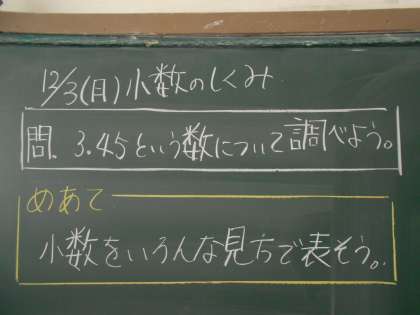 12/3(日)小数のしくみ
問. 3.45という数について調べよう。
めあて
小数をいろんな見方で表そう。